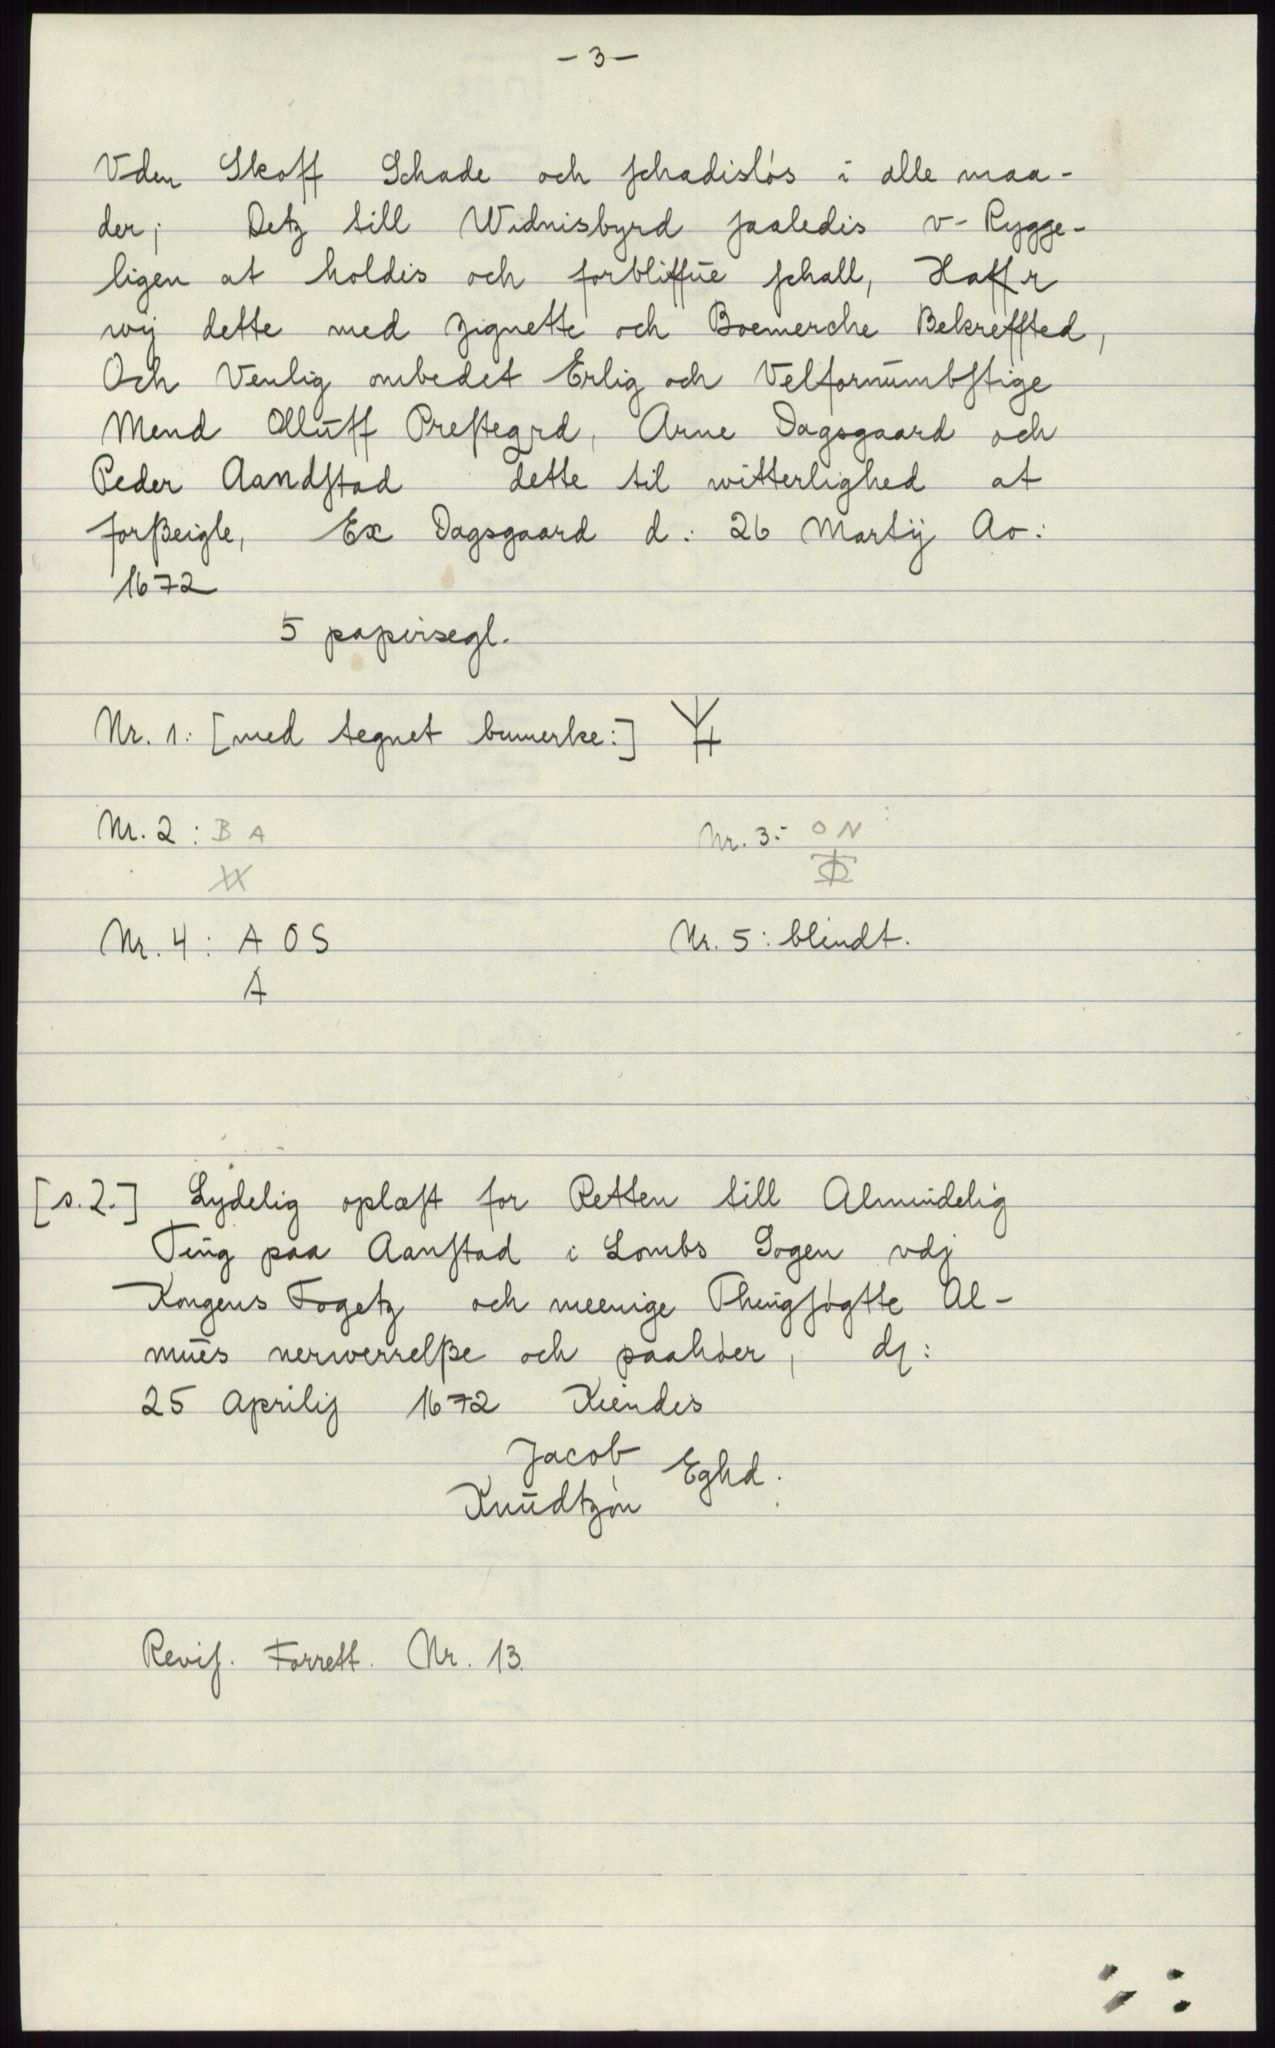 - 3 -
Vden Skoff Schade och schadisløs i alle maa-
der; Detz till Widnisbyrd saaledis v-Rygge-
ligen at holdis och forbliffue schall, Haffr
wij dette med zignette och Boemerche Bekreffted,
Och Venlig ombedet Erlig och Velfornumbstige
Mend Olluff Prestegrd, Arne Dagsgaard och
Peder Aandstad dette til witterlighed at
forßeigle, Ex Dagsgaard d: 26 Martij Ao:
1672
5 papirsegl.
Nr. 1: [med tegnet bumerke:]
Nr. 2: B A Nr. 3: O N
Nr. 4: A O S Nr. 5: blindt.
A
[s.2.] Lydelig oplæst for Retten till Almindelig
Ting paa Aanstad i Lombs Sogen vdj
Kongens Fogetz och meenige Thingsøgtte Al-
mues nerwerrelße och paahøer, dj:
25 Aprilij 1672 Kiendis
Jacob
Knudtzøn Eghd.
Revis. Forrett. Nr. 13.